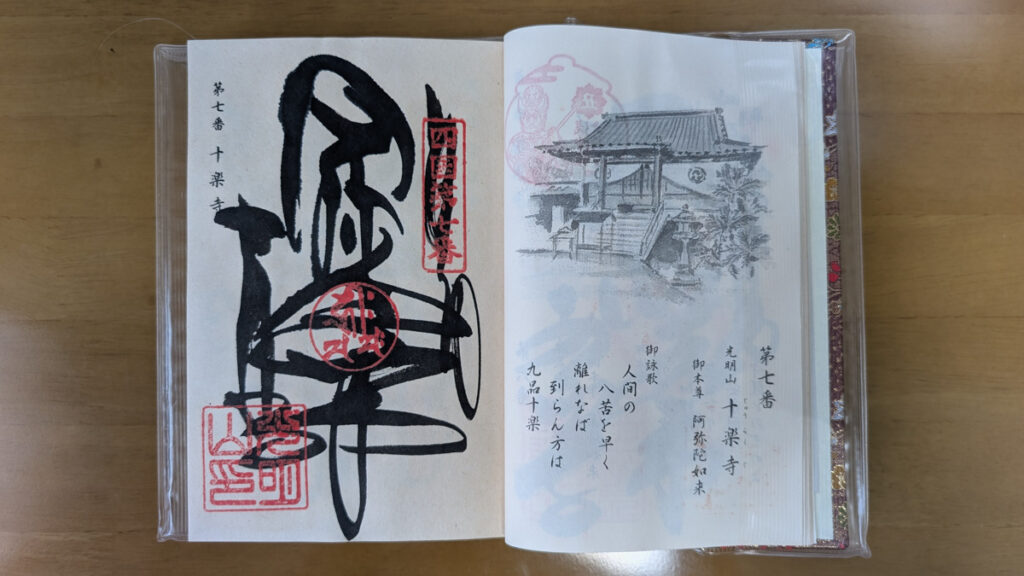 第七番
光明山 十楽寺
じゅうらくじ
御本尊 阿弥陀如来
御詠歌
人間の
八苦を早く
離れなば
到らん方は
九品十楽
四国第七番
光明山印
第七番 十楽寺